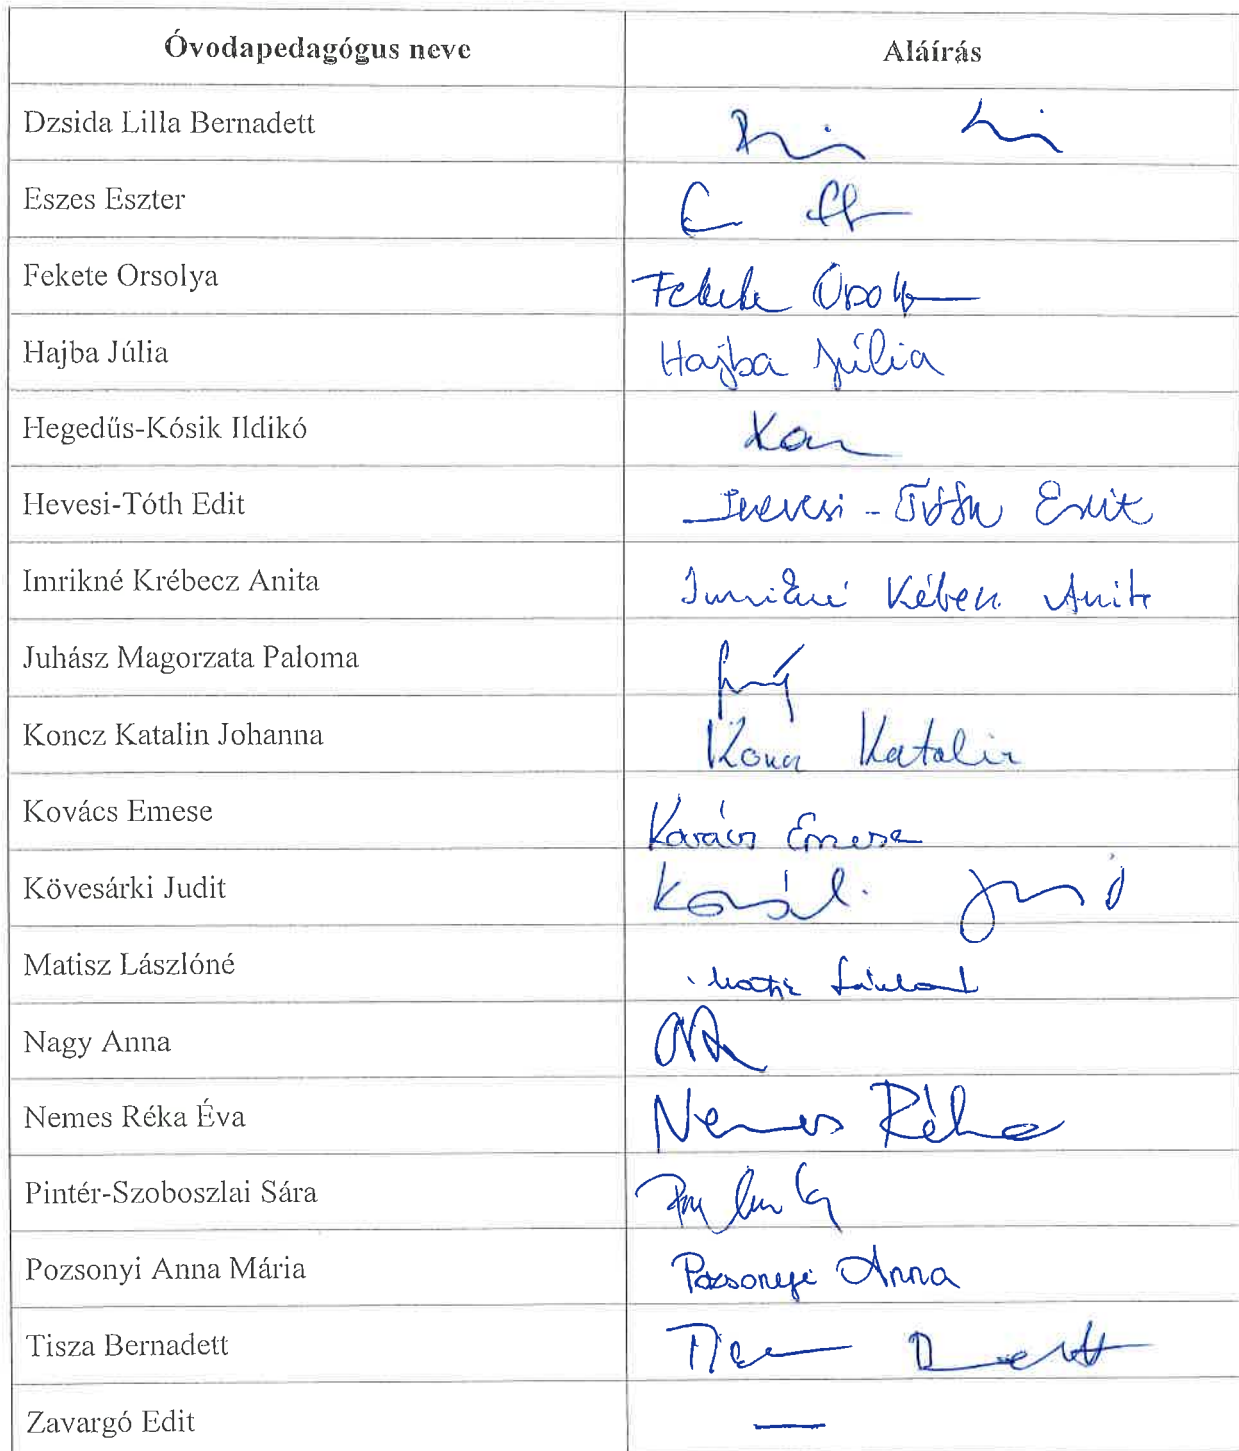 Óvodapedagógus neve Aláírás
Dzsida Lilla Bernadett
Eszes Eszter
Fekete Orsolya Fekete Orsolya
Hajba Júlia Hajba Júlia
Hegedűs-Kósik Ildikó
Hevesi-Tóth Edit Hevesi-Tóth Edit
Imrikné Krébecz Anita Imrikné Anita
Juhász Magorzata Paloma
Koncz Katalin Johanna Koncz Katalin
Kovács Emese Kovács Emese
Kövesárki Judit
Matisz Lászlóné
Nagy Anna
Nemes Réka Éva Nemes Réka
Pintér-Szoboszlai Sára
Pozsonyi Anna Mária Pozsonyi Anna
Tisza Bernadett
Zavargó Edit —